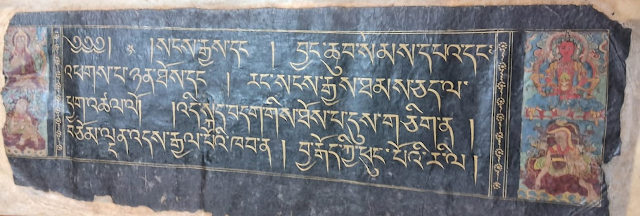 ༄༅༅། ༔ །སངས་རྒྱས་དང་ །བྱང་ཆུབ་སེམས་དཔའ་དང་
འཕགས་པ་ཉན་ཐོས་དང་ །རང་སངས་རྒྱས་ཐམས་ཅད་ལ་
ཕྱག་འཚལ་ལོ། །འདི་སྐད་བདག་གིས་ཐོས་པ་དུས་གཅིག་ན །
བཅོམ་ལྡན་འདས་རྒྱལ་པོའི་ཁབ་ན །བྱ་རྒོད་ཀྱི་ཕུང་པོའི་རི་ལ །